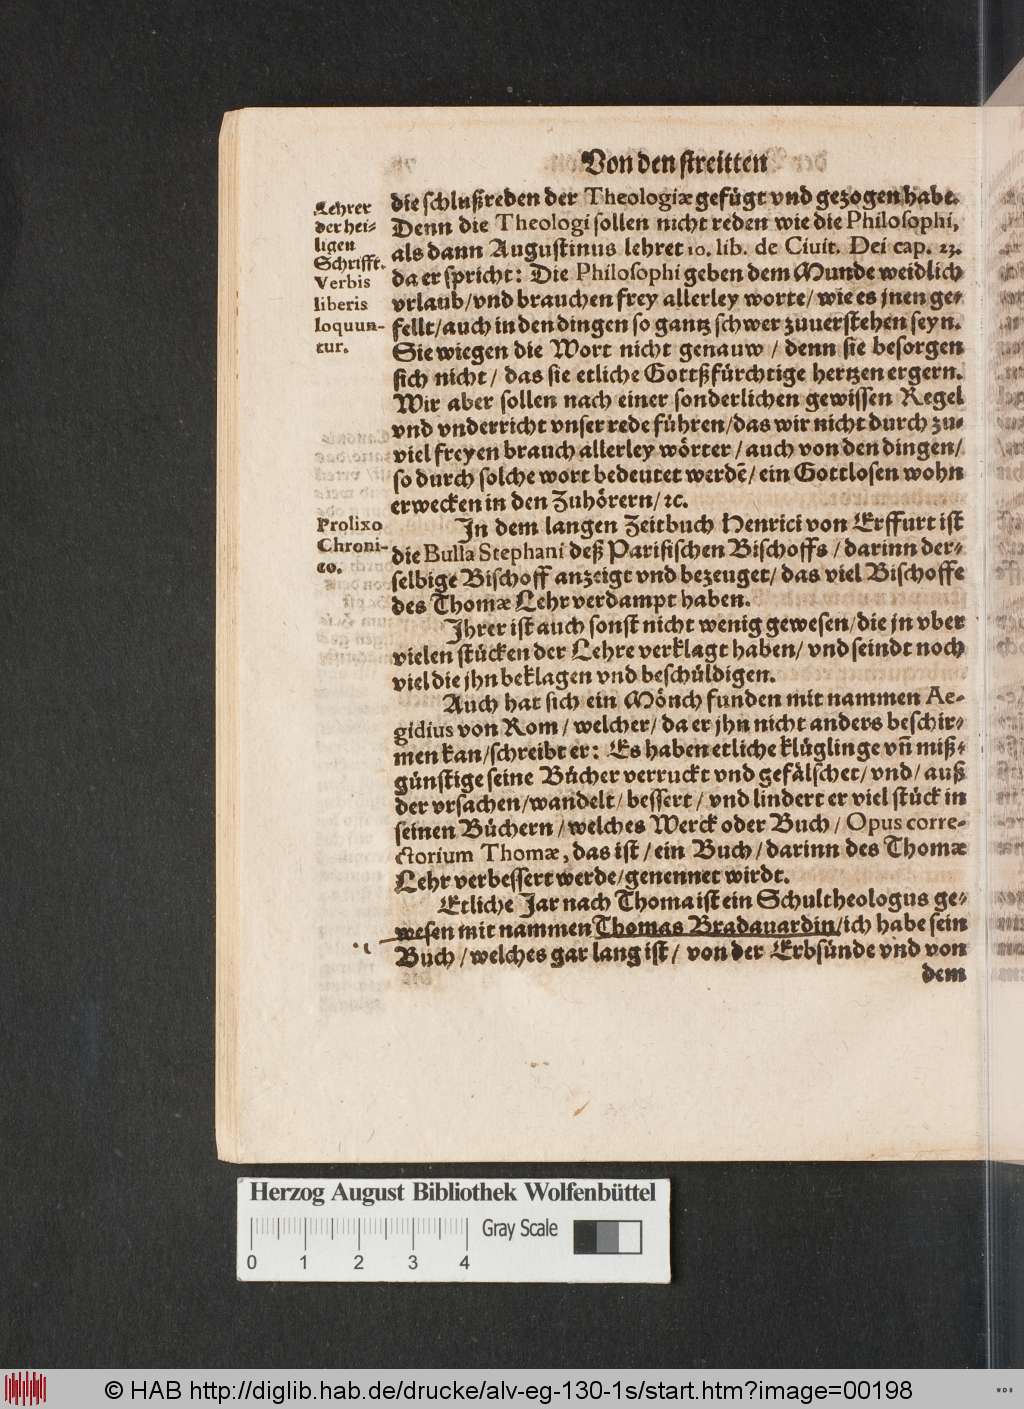 Von den streitten
die schlußreden der Theologiæ gefügt vnd gezogen habe.
Denn die Theologi sollen nicht reden wie die Philosophi,
als dann Augustinus lehret 10. lib. de Ciuit. Dei cap. 23.
da er spricht: Die Philosophi geben dem Munde weidlich
vrlaub/vnd brauchen frey allerley worte/wie es jnen ge-
fellt/auch in den dingen so gantz schwer zuuerstehen seyn.
Sie wiegen die Wort nicht genauw / denn sie besorgen
sich nicht/ das sie etliche Gottßfürchtige hertzen ergern.
Wir aber sollen nach einer sonderlichen gewissen Regel
vnd vnderricht vnser rede führen/das wir nicht durch zu-
viel freyen brauch allerley wörter / auch von den dingen/
so durch solche wort bedeutet werdẽ/ein Gottlosen wohn
erwecken in den Zuhörern/ ꝛc.
Lehrer
der hei-
ligen
Schrifft.
Verbis
liberis
loquun-
tur.
In dem langen Zeitbuch Henrici von Erffurt ist
die Bulla Stephani deß Parisischen Bischoffs / darinn der-
selbige Bischoff anzeigt vnd bezeuget/das viel Bischoffe
des Thomæ Lehr verdampt haben.
Prolixo
Chroni-
co.
Ihrer ist auch sonst nicht wenig gewesen/die jn vber
vielen stücken der Lehre verklagt haben/ vnd seindt noch
viel die jhn beklagen vnd beschüldigen.
Auch hat sich ein Mönch funden mit nammen Ae-
gidius von Rom / welcher/ da er jhn nicht anders beschir-
men kan/schreibt er: Es haben etliche klüglinge vñ miß-
günstige seine Bücher verruckt vnd gefälschet/vnd/ auß
der vrsachen/wandelt/bessert / vnd lindert er viel stück in
seinen Büchern/welches Werck oder Buch/ Opus corre-
ctorium Thomæ, das ist/ein Buch/darinn des Thomæ
Lehr verbessert werde/genennet wirdt.
Etliche Jar nach Thoma ist ein Schultheologus ge-
wesen mit nammen Thomas Bradauardin/ich habe sein
Buch/welches gar lang ist/ von der Erbsünde vnd von
dem
Herzog August Bibliothek Wolfenbüttel
Gray Scale
0 1 2 3 4
© HAB http://diglib.hab.de/drucke/alv-eg-130-1s/start.htm?image=00198